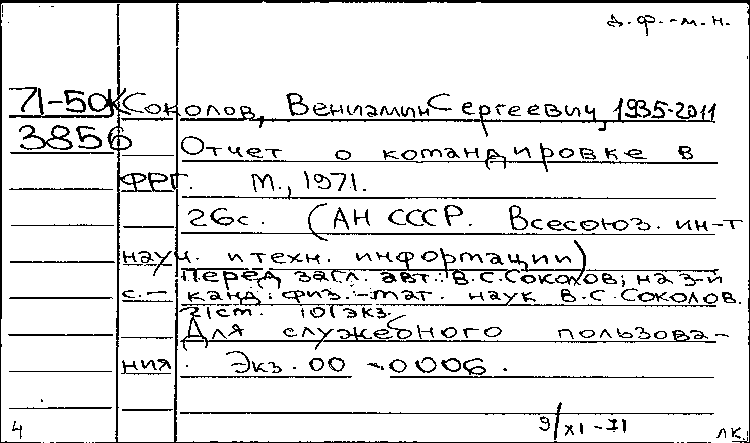 д.ф.-м.н.
71-50К Соколов, Вениамин Сергеевич, 1935-2011
3856
Отчет о командировке в
ФРГ. М., 1971.
26с. (АН СССР. Всесоюз. ин-т
науч. и техн. информации)
Перед загл. авт.: В.С.Соколов; на 3-й
с.- канд. физ.-мат. наук В.С.Соколов.
21ст. 101экз.
Для служебного пользова-
ния. Экз. 00-0006.
4 9/XI-71 ЛК